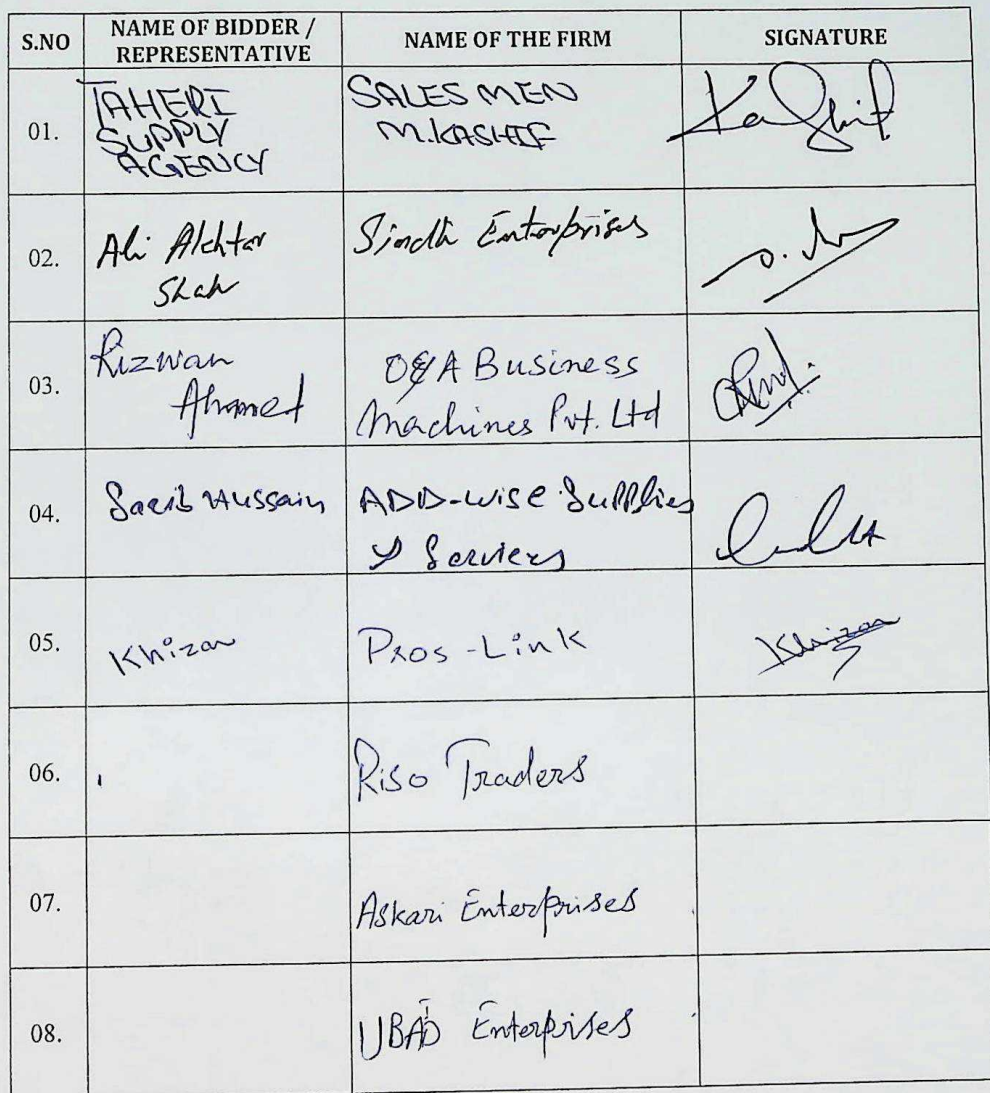 S.NO
NAME OF BIDDER /
REPRESENTATIVE
NAME OF THE FIRM
SIGNATURE
01.
TAHERI
SUPPLY
AGENCY
SALES MEN
M.KASHIF
Kashif
02.
Ali Akhtar
Shah
Sindh Enterprises
03.
Rizwan
Ahmed
O&A Business
Machines Pvt. Ltd
04.
Hussain
ADD-wise Supplies
& Services
05.
Khizar
Pros-Link
Khizar
06.
Riso Traders
07.
Askari Enterprises
08.
Enterprises